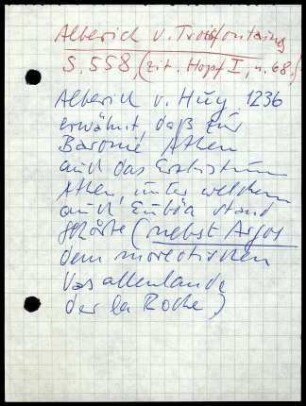 Alberich v. Troisfontaines
S. 558, (zit. Hopf I, n. 68.)
Alberich v. Huy 1236
erwähnt, daß zur
Baronie Athen
auch das Erzbistum
Athen, unter welchem
auch Euböa stand
gehörte (nebst Argos
dem moreotischen
Vasallenlande
der la Roche)